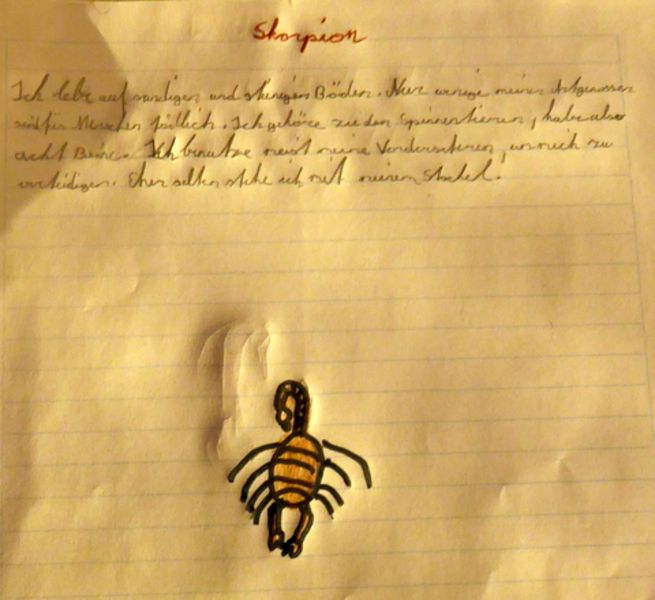 Skorpion
Ich lebe auf sandigen und steinigen Böden. Nur wenige meiner Artgenossen
sind für Menschen tödlich. Ich gehöre zu den Spinnentieren, habe also
acht Beine. Ich benutze meist meine Vorderscheren, um mich zu
verteidigen. Eher selten steche ich mit meinem Stachel.